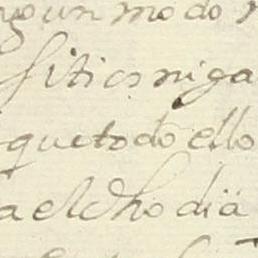 gun modo
sitios niga
que todo ello
a el dho dia